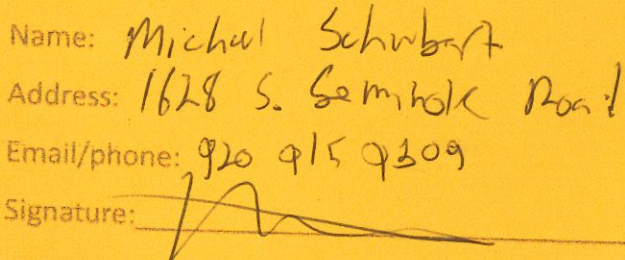 Name: Michael Schubart
Address: 1628 S. Seminole Road
Email/phone: 920 915 9309
Signature: